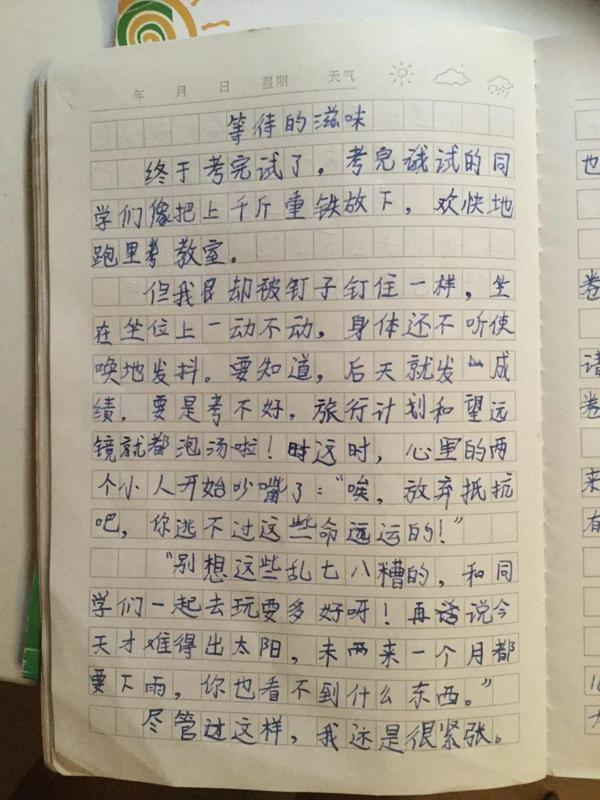 年 月 日 星期 天气
等待的滋味
终于考完试了，考完试的同
学们像把上千斤重铁放下，欢快地
跑里教室。
但我却被钉子钉住一样，坐
在坐位上一动不动，身体还不听使
唤地发抖。要知道，后天就发成
绩，要是考不好，旅行计划和望远
镜就都泡汤啦！这时，心里的两
个小人开始吵嘴了：“唉，放弃抵抗
吧，你逃不过这些命运的！”
“别想这些乱七八糟的，和同
学们一起去玩耍多好呀！再说今
天才难得出太阳，未来一个月都
要下雨，你也看不到什么东西。”
尽管这样，我还是很紧张。
也
卷
请
卷
来
有